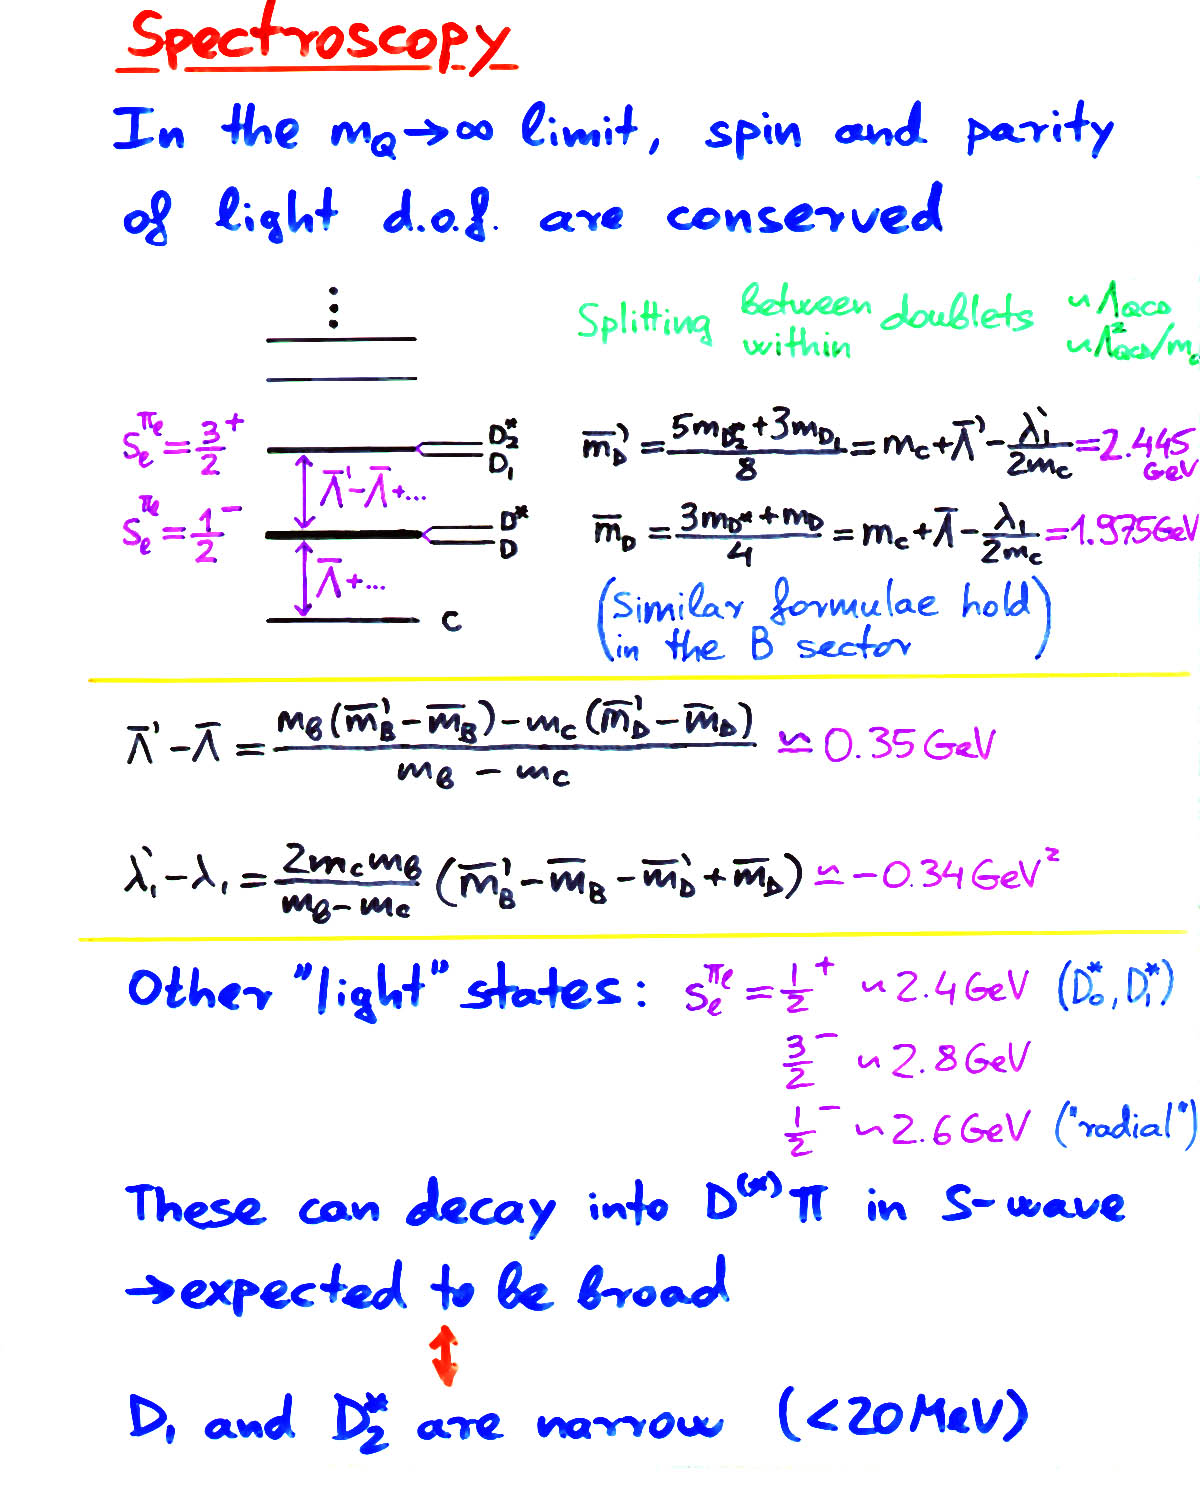 Spectroscopy
In the m_Q→∞ limit, spin and parity
of light d.o.f. are conserved
Splitting between doublets ~Λ_QCD
within ~Λ²_QCD/m_c
s_ℓ^{π_ℓ} = 3/2⁺ D₂* D₁
Λ̄' - Λ̄ + ...
m̄_D' = (5m_{D₂*} + 3m_{D₁})/8 = m_c + Λ̄' - λ₁'/2m_c = 2.445 GeV
s_ℓ^{π_ℓ} = 1/2⁻ D* D
m̄_D = (3m_{D*} + m_D)/4 = m_c + Λ̄ - λ₁/2m_c = 1.975 GeV
Λ̄ + ...
c
(Similar formulae hold
in the B sector)
Λ̄' - Λ̄ = (m_b(m̄_B' - m̄_B) - m_c(m̄_D' - m̄_D))/(m_b - m_c) ≃ 0.35 GeV
λ₁' - λ₁ = 2m_c m_b/(m_b - m_c) (m̄_B' - m̄_B - m̄_D' + m̄_D) ≃ -0.34 GeV²
Other "light" states: s_ℓ^{π_ℓ} = 1/2⁺ ~ 2.4 GeV (D₀*, D₁*)
3/2⁻ ~ 2.8 GeV
1/2⁻ ~ 2.6 GeV ("radial")
These can decay into D^(*) π in S-wave
→ expected to be broad
↕
D₁ and D₂* are narrow (<20 MeV)